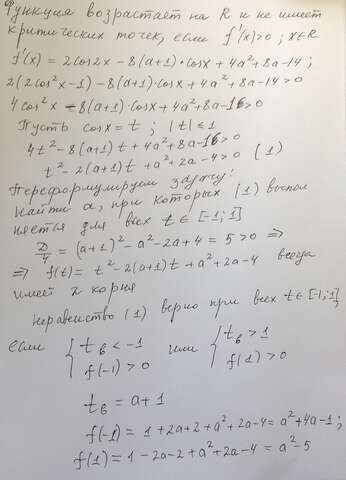 Функция возрастает на R и не имеет
критических точек, если f'(x)>0; x∈R
f'(x) = 2cos2x - 8(a+1)·cosx + 4a²+8a-14;
2(2cos²x-1) - 8(a+1)·cosx + 4a²+8a-14>0
4cos²x - 8(a+1)·cosx + 4a²+8a-16>0
Пусть cosx = t; |t| ≤ 1
4t² - 8(a+1)t + 4a²+8a-16>0
t² - 2(a+1)t + a²+2a-4>0 (1)
Переформулируем задачу:
Найти a, при которых (1) выпол
няется для всех t∈[-1;1]
D/4 = (a+1)² - a² - 2a + 4 = 5 > 0 ⇒
⇒ f(t) = t² - 2(a+1)t + a² + 2a - 4 всегда
имеет 2 корня
Неравенство (1) верно при всех t∈[-1;1],
если { t_в < -1 или { t_в > 1
f(-1) > 0 f(1) > 0
t_в = a+1
f(-1) = 1+2a+2+a²+2a-4 = a²+4a-1;
f(1) = 1-2a-2+a²+2a-4 = a²-5